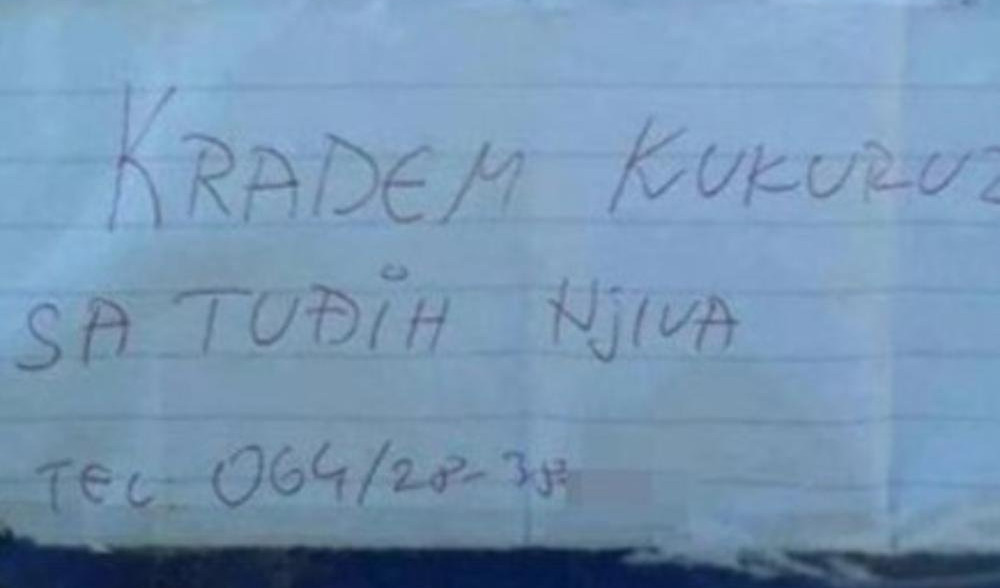 KRADEM KUKURUZ
SA TUĐIH NJIVA
TEL 064/28-38